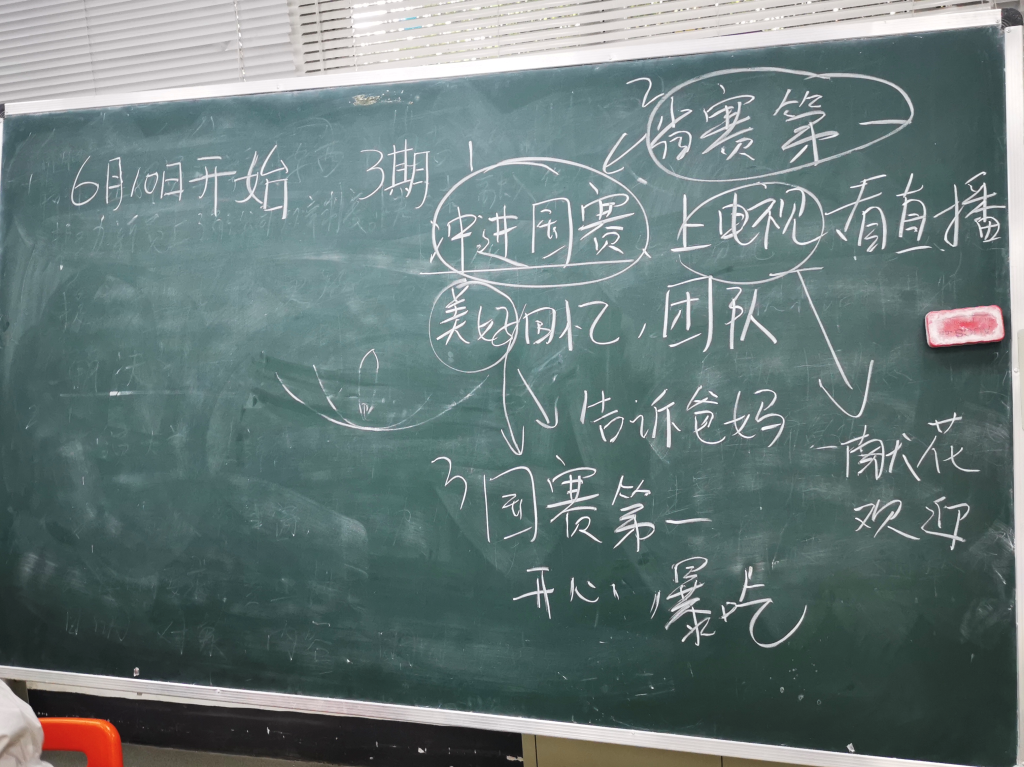 2 省赛第一
6月10日开始 3期
1 冲进国赛 上电视 看直播
美好回忆,团队
告诉爸妈
一献花
欢迎
3 国赛第一
开心,爆吃